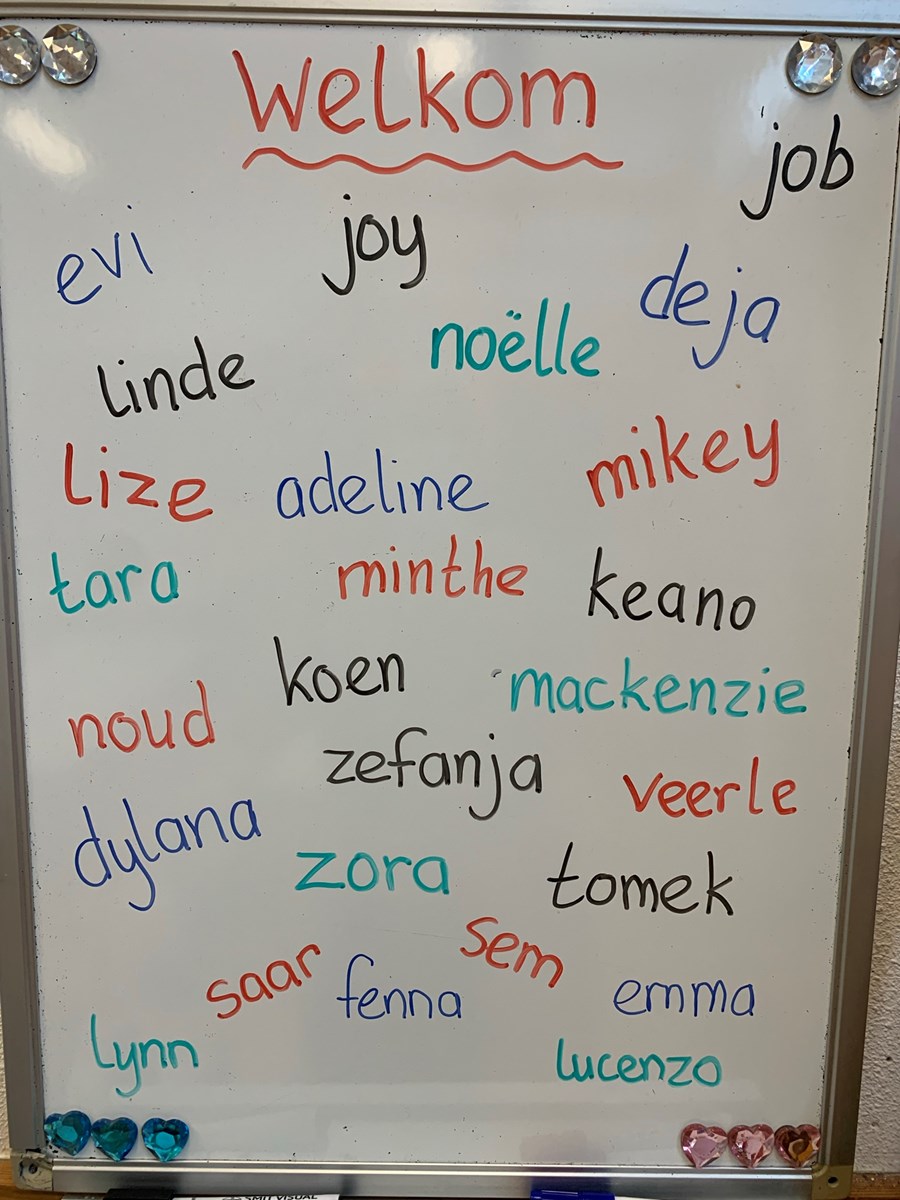 Welkom
job
evi
joy
deja
noëlle
linde
lize
adeline
mikey
tara
minthe
keano
koen
mackenzie
noud
zefanja
veerle
dylana
zora
tomek
saar
sem
fenna
emma
lynn
lucenzo
SMIT VISUAL